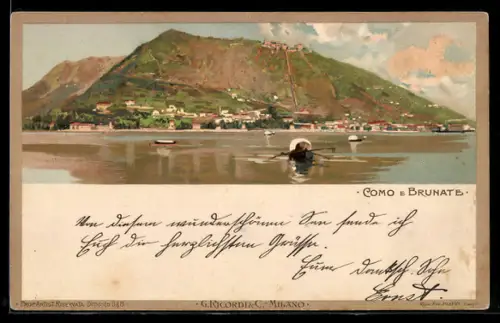 COMO E BRUNATE
Von diesem wunderschönen See sende ich
Euch die herzlichsten Grüsse.
Euer
Ernst.
G. RICORDI & C. - MILANO